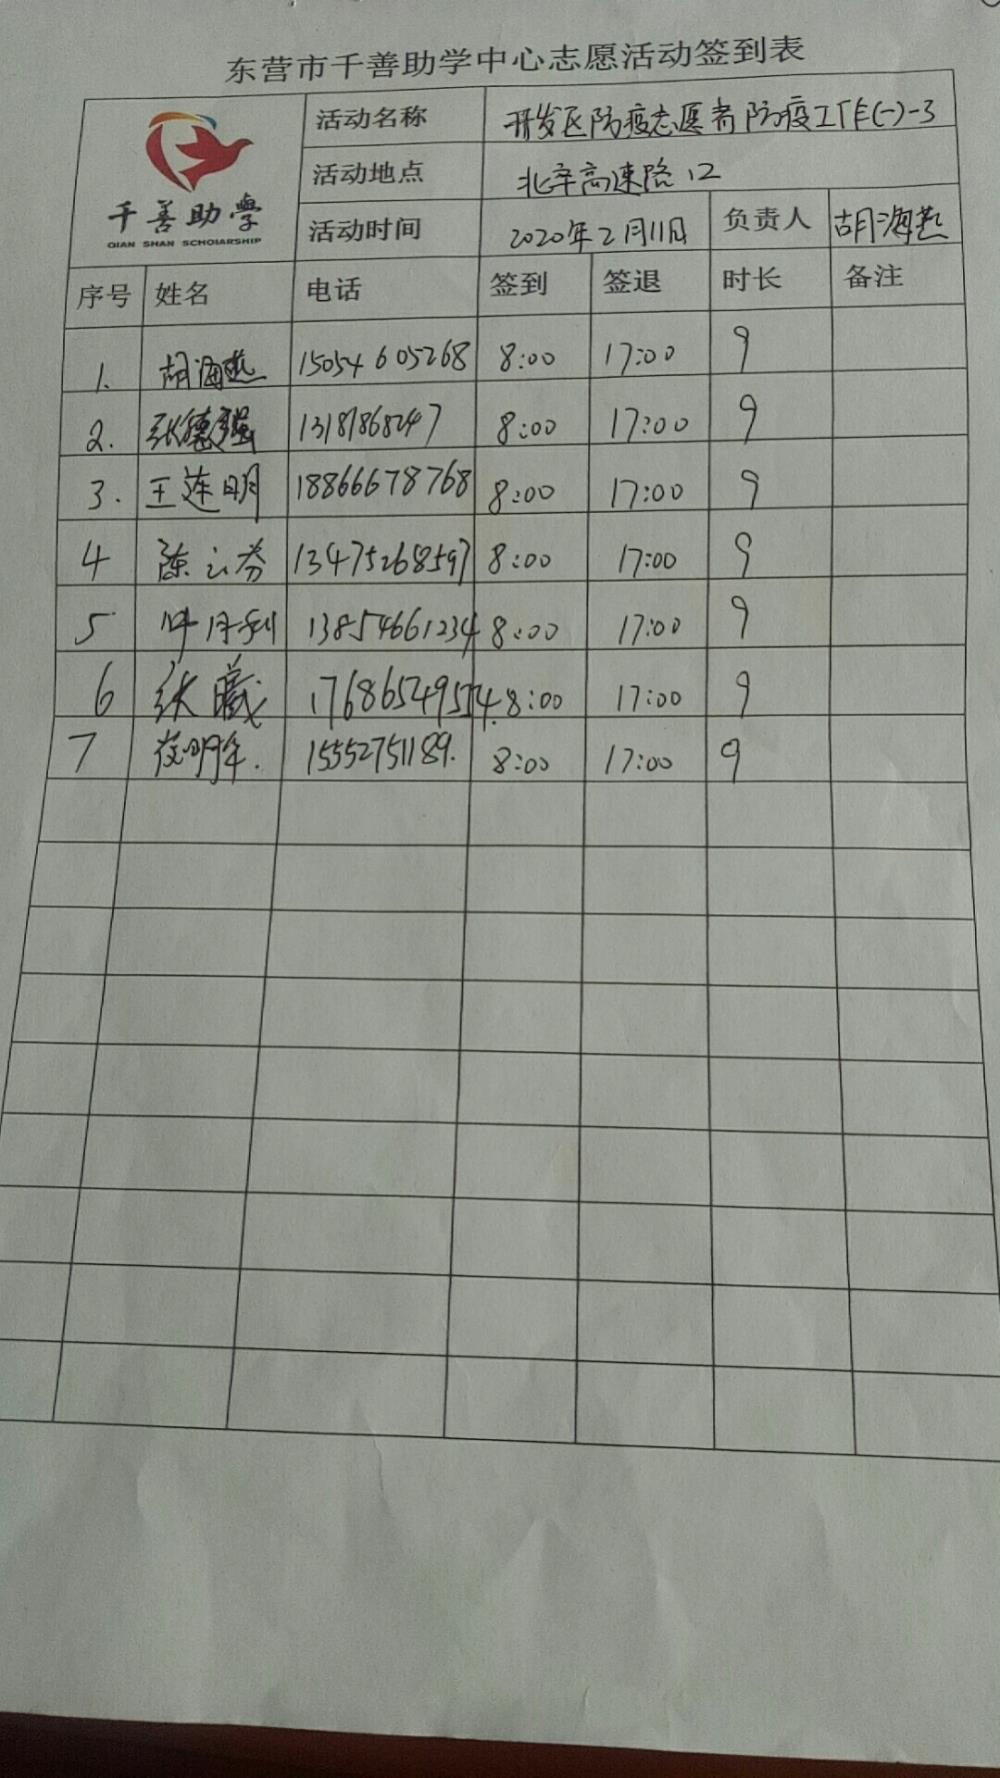 东营市千善助学中心志愿活动签到表
千善助学
QIAN SHAN SCHOlARSHIP
活动名称 开发区防疫志愿者防疫工作(一)-3
活动地点 北辛高速路口
活动时间 2020年2月11日 负责人 胡海燕
序号 姓名 电话 签到 签退 时长 备注
1. 胡海燕 15054605268 8:00 17:00 9
2. 张德强 8:00 17:00 9
3. 王连明 18866678768 8:00 17:00 9
4 陈云芬 13475268597 8:00 17:00 9
5 13854661234 8:00 17:00 9
6 张 8:00 17:00 9
7 15552751189. 8:00 17:00 9